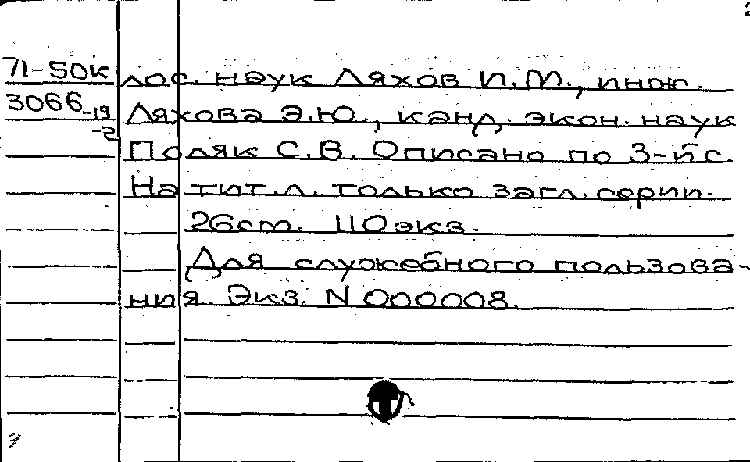 71-50к
3066-19
-2
лос. наук Ляхов И.М., инж.
Ляхова Э.Ю., канд. экон. наук
Поляк С.В. Описано по 3-й с.
На тит. л. только загл. серии.
26см. 110экз.
Для служебного пользова-
ния. Экз. N 000008.